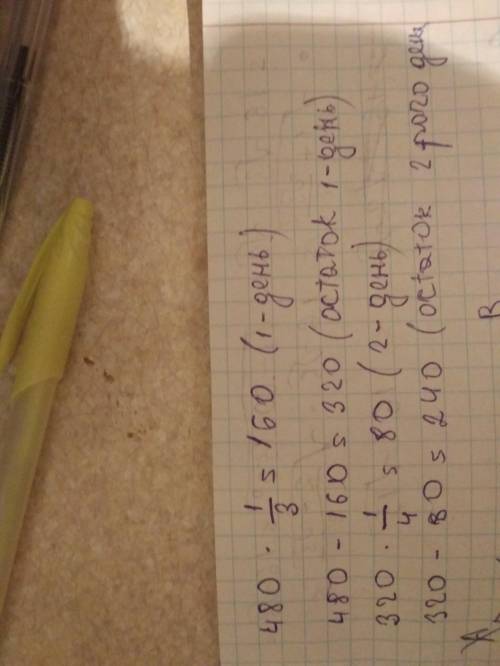 480 · 1/3 = 160 (1-день)
480 - 160 = 320 (остаток 1-день)
320 · 1/4 = 80 (2-день)
320 - 80 = 240 (остаток 2 рого ден
В
А